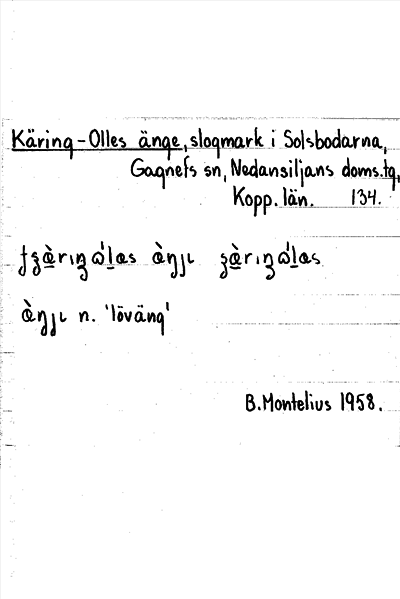 Käring-Olles änge, slogmark i Solsbodarna,
Gagnefs sn, Nedansiljans doms.tg,
Kopp. län. 134.
n. 'löväng'
B. Montelius 1958.